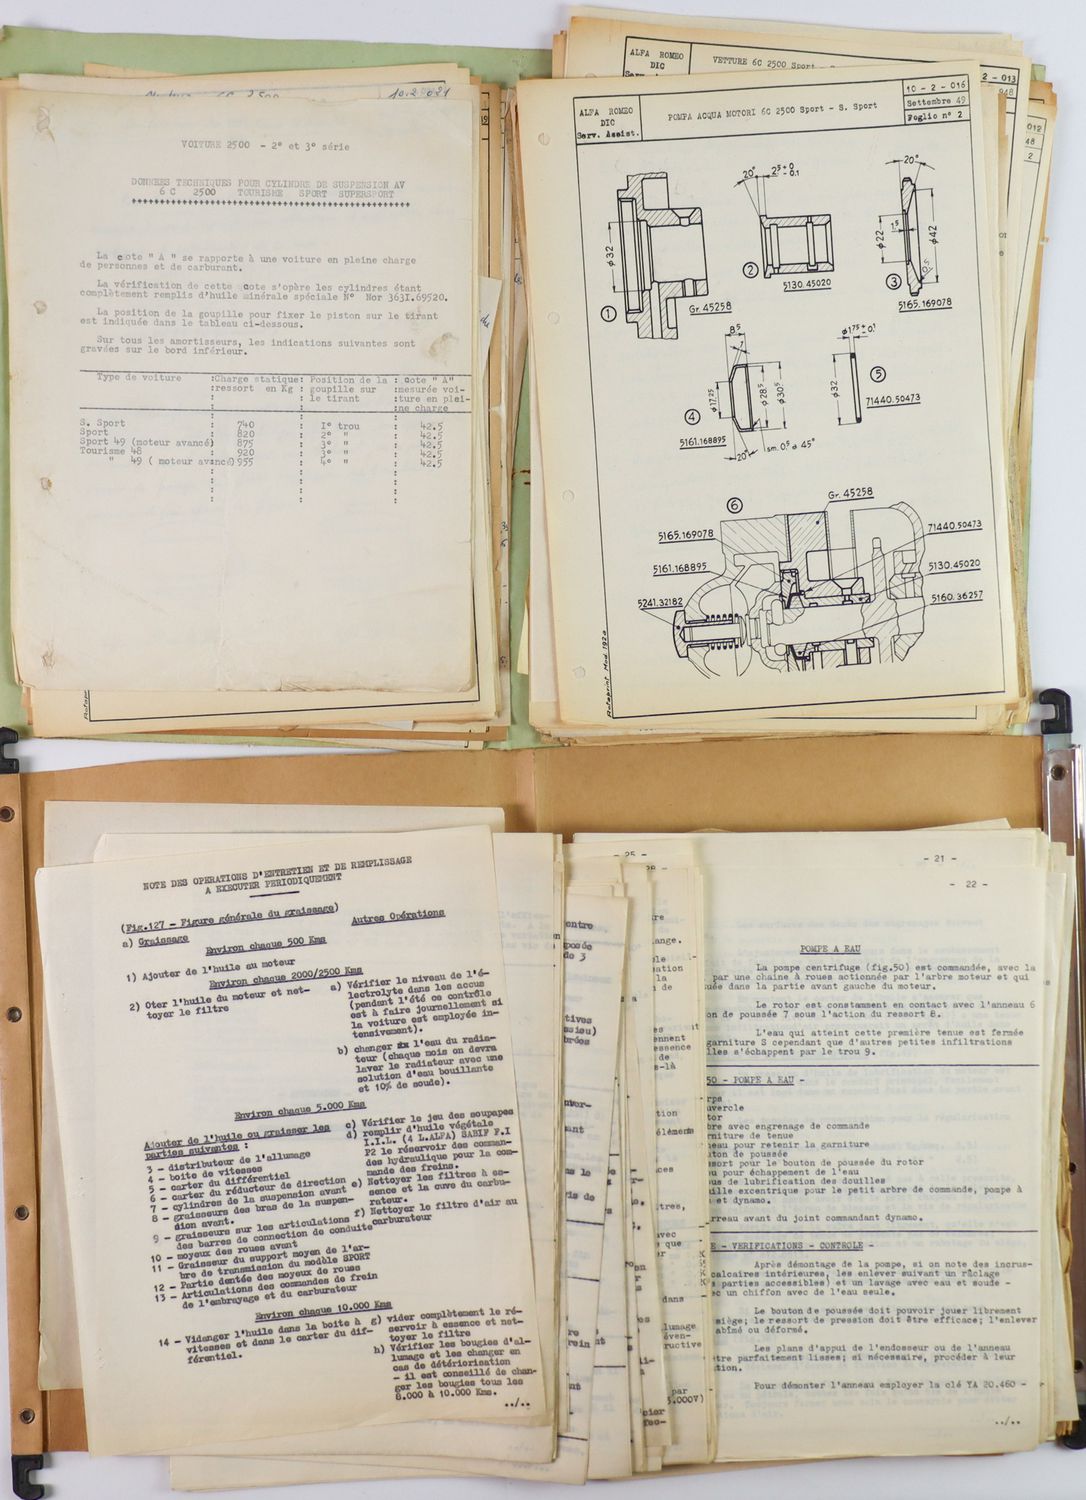 10.2.021
VOITURE 2500 - 2° et 3° série
DONNEES TECHNIQUES POUR CYLINDRE DE SUSPENSION AV
6 C 2500 TOURISME SPORT SUPERSPORT
La cote " A " se rapporte à une voiture en pleine charge
de personnes et de carburant.
La vérification de cette cote s'opère les cylindres étant
complètement remplis d'huile minérale spéciale N° Nor 363I.69520.
La position de la goupille pour fixer le piston sur le tirant
est indiquée dans le tableau ci-dessous.
Sur tous les amortisseurs, les indications suivantes sont
gravées sur le bord inférieur.
Type de voiture :Charge statique: Position de la : cote " A"
:ressort en Kg : goupille sur :mesurée voi-
: : le tirant :ture en plei-
: : :ne charge
S. Sport : 740 : I° trou : 42.5
Sport : 820 : 2° " : 42.5
Sport 49 (moteur avancé) 875 : 3° " : 42.5
Tourisme 48 : 920 : 3° " : 42.5
" 49 ( moteur avancé) 955 : 4° " : 42.5
ALFA ROMEO
DIC
VETTURE 6C 2500 Sport
2 - 013
948
012
48
2
ALFA ROMEO
DIC
Serv. Assist.
POMPA ACQUA MOTORI 6C 2500 Sport - S. Sport
10 - 2 - 016
Settembre 49
Foglio n° 2
20°
2⁵ + 0 - 0.1
20°
ϕ32
1⁵
ϕ22
ϕ42
0,5
1
Gr. 45258
2
5130.45020
3
5165.169078
8⁵
7
ϕ17,25
ϕ28⁵
ϕ30⁵
4
5161.168895
20°
sm. 0,⁵ a 45°
ϕ1,75 ± 0.1
ϕ32
5
71440.50473
6
Gr. 45258
5165.169078
5161.168895
5241.32182
71440.50473
5130.45020
5160.36257
Rotaprint Mod. 192a
NOTE DES OPERATIONS D'ENTRETIEN ET DE REMPLISSAGE
A EXECUTER PERIODIQUEMENT
(Fig.127 - Figure générale du graissage)
Autres Opérations
a) Graissage
Environ chaque 500 Kms
1) Ajouter de l'huile au moteur
Environ chaque 2000/2500 Kms
2) Oter l'huile du moteur et net-
toyer le filtre
a) Vérifier le niveau de l'é-
lectrolyte dans les accus
(pendant l'été ce contrôle
est à faire journellement si
la voiture est employée in-
tensivement).
b) changer l'eau du radia-
teur (chaque mois on devra
laver le radiateur avec une
solution d'eau bouillante
et 10% de soude).
Environ chaque 5.000 Kms
Ajouter de l'huile ou graisser les
parties suivantes :
3 - distributeur de l'allumage
4 - boite de vitesses
5 - carter du différentiel
6 - carter du réducteur de direction
7 - cylindres de la suspension avant
8 - graisseurs des bras de la suspen-
sion avant.
9 - graisseurs sur les articulations
des barres de connection de conduite
10 - moyeux des roues avant
11 - Graisseur du support moyen de l'ar-
bre de transmission du modèle SPORT
12 - Partie dentée des moyeux de roues
13 - Articulations des commandes de frein
de l'embrayage et du carburateur
c) Vérifier le jeu des soupapes
d) remplir d'huile végétale
I.I.L. (4 L.ALFA) SABIF F.I
P2 le réservoir des comman-
des hydraulique pour la com-
mande des freins.
e) Nettoyer les filtres à es-
sence et la cuve du carbu-
rateur.
f) Nettoyer le filtre d'air au
carburateur
Environ chaque 10.000 Kms
14 - Vidanger l'huile dans la boite à
vitesses et dans le carter du dif-
férentiel.
g) vider complètement le ré-
servoir à essence et net-
toyer le filtre
h) Vérifier les bougies d'al-
lumage et les changer en
cas de détériorisation
- il est conseillé de chan-
ger les bougies tous les
8.000 à 10.000 Kms.
../..
- 21 -
- 22 -
POMPE A EAU
La pompe centrifuge (fig.50) est commandée, avec la
par une chaine à roues actionnée par l'arbre moteur et qui
uée dans la partie avant gauche du moteur.
Le rotor est constamment en contact avec l'anneau 6
on de poussée 7 sous l'action du ressort 8.
L'eau qui atteint cette première tenue est fermée
garniture S cependant que d'autres petites infiltrations
lles s'échappent par le trou 9.
50 - POMPE A EAU -
rps
uvercle
tor
bre avec engrenage de commande
rniture de tenue
neau pour retenir la garniture
uton de poussée
ssort pour le bouton de poussée du rotor
ou pour échappement de l'eau
us de lubrification des douilles
ille excentrique pour le petit arbre de commande, pompe à
et dynamo.
rreau avant du joint commandant dynamo.
E - VERIFICATIONS - CONTROLE -
Après démontage de la pompe, si on note des incrus-
calcaires intérieures, les enlever suivant un râclage
parties accessibles) et un lavage avec eau et soude -
ec un chiffon avec de l'eau seule.
Le bouton de poussée doit pouvoir jouer librement
siège; le ressort de pression doit être efficace; l'enlever
abîmé ou déformé.
Les plans d'appui de l'endosseur ou de l'anneau
tre parfaitement lisses; si nécessaire, procéder à leur
tion.
Pour démonter l'anneau employer la clé YA 20.460 -
../..